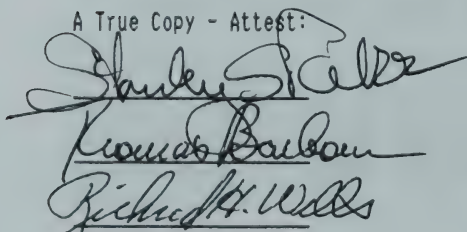 A True Copy - Attest:
Stanley
Thomas Barbour
Richard H. Wells